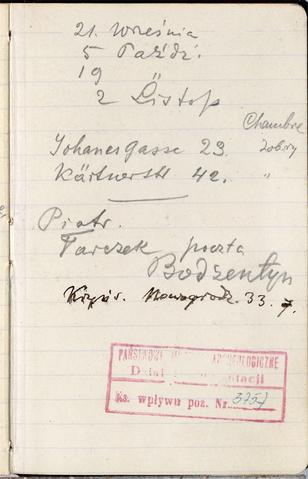 21. Września
5 Paźdź.
19 "
2 Listop
Chambre
Johannesgasse 23. dobry
Kärtnerstr 42. "
Piotr.
Tarczek poczta
Bodzentyn
Nowogrodz. 33.
PAŃSTWOWE ARCHEOLOGICZNE
Dział
Ks. wpływu poz. Nr